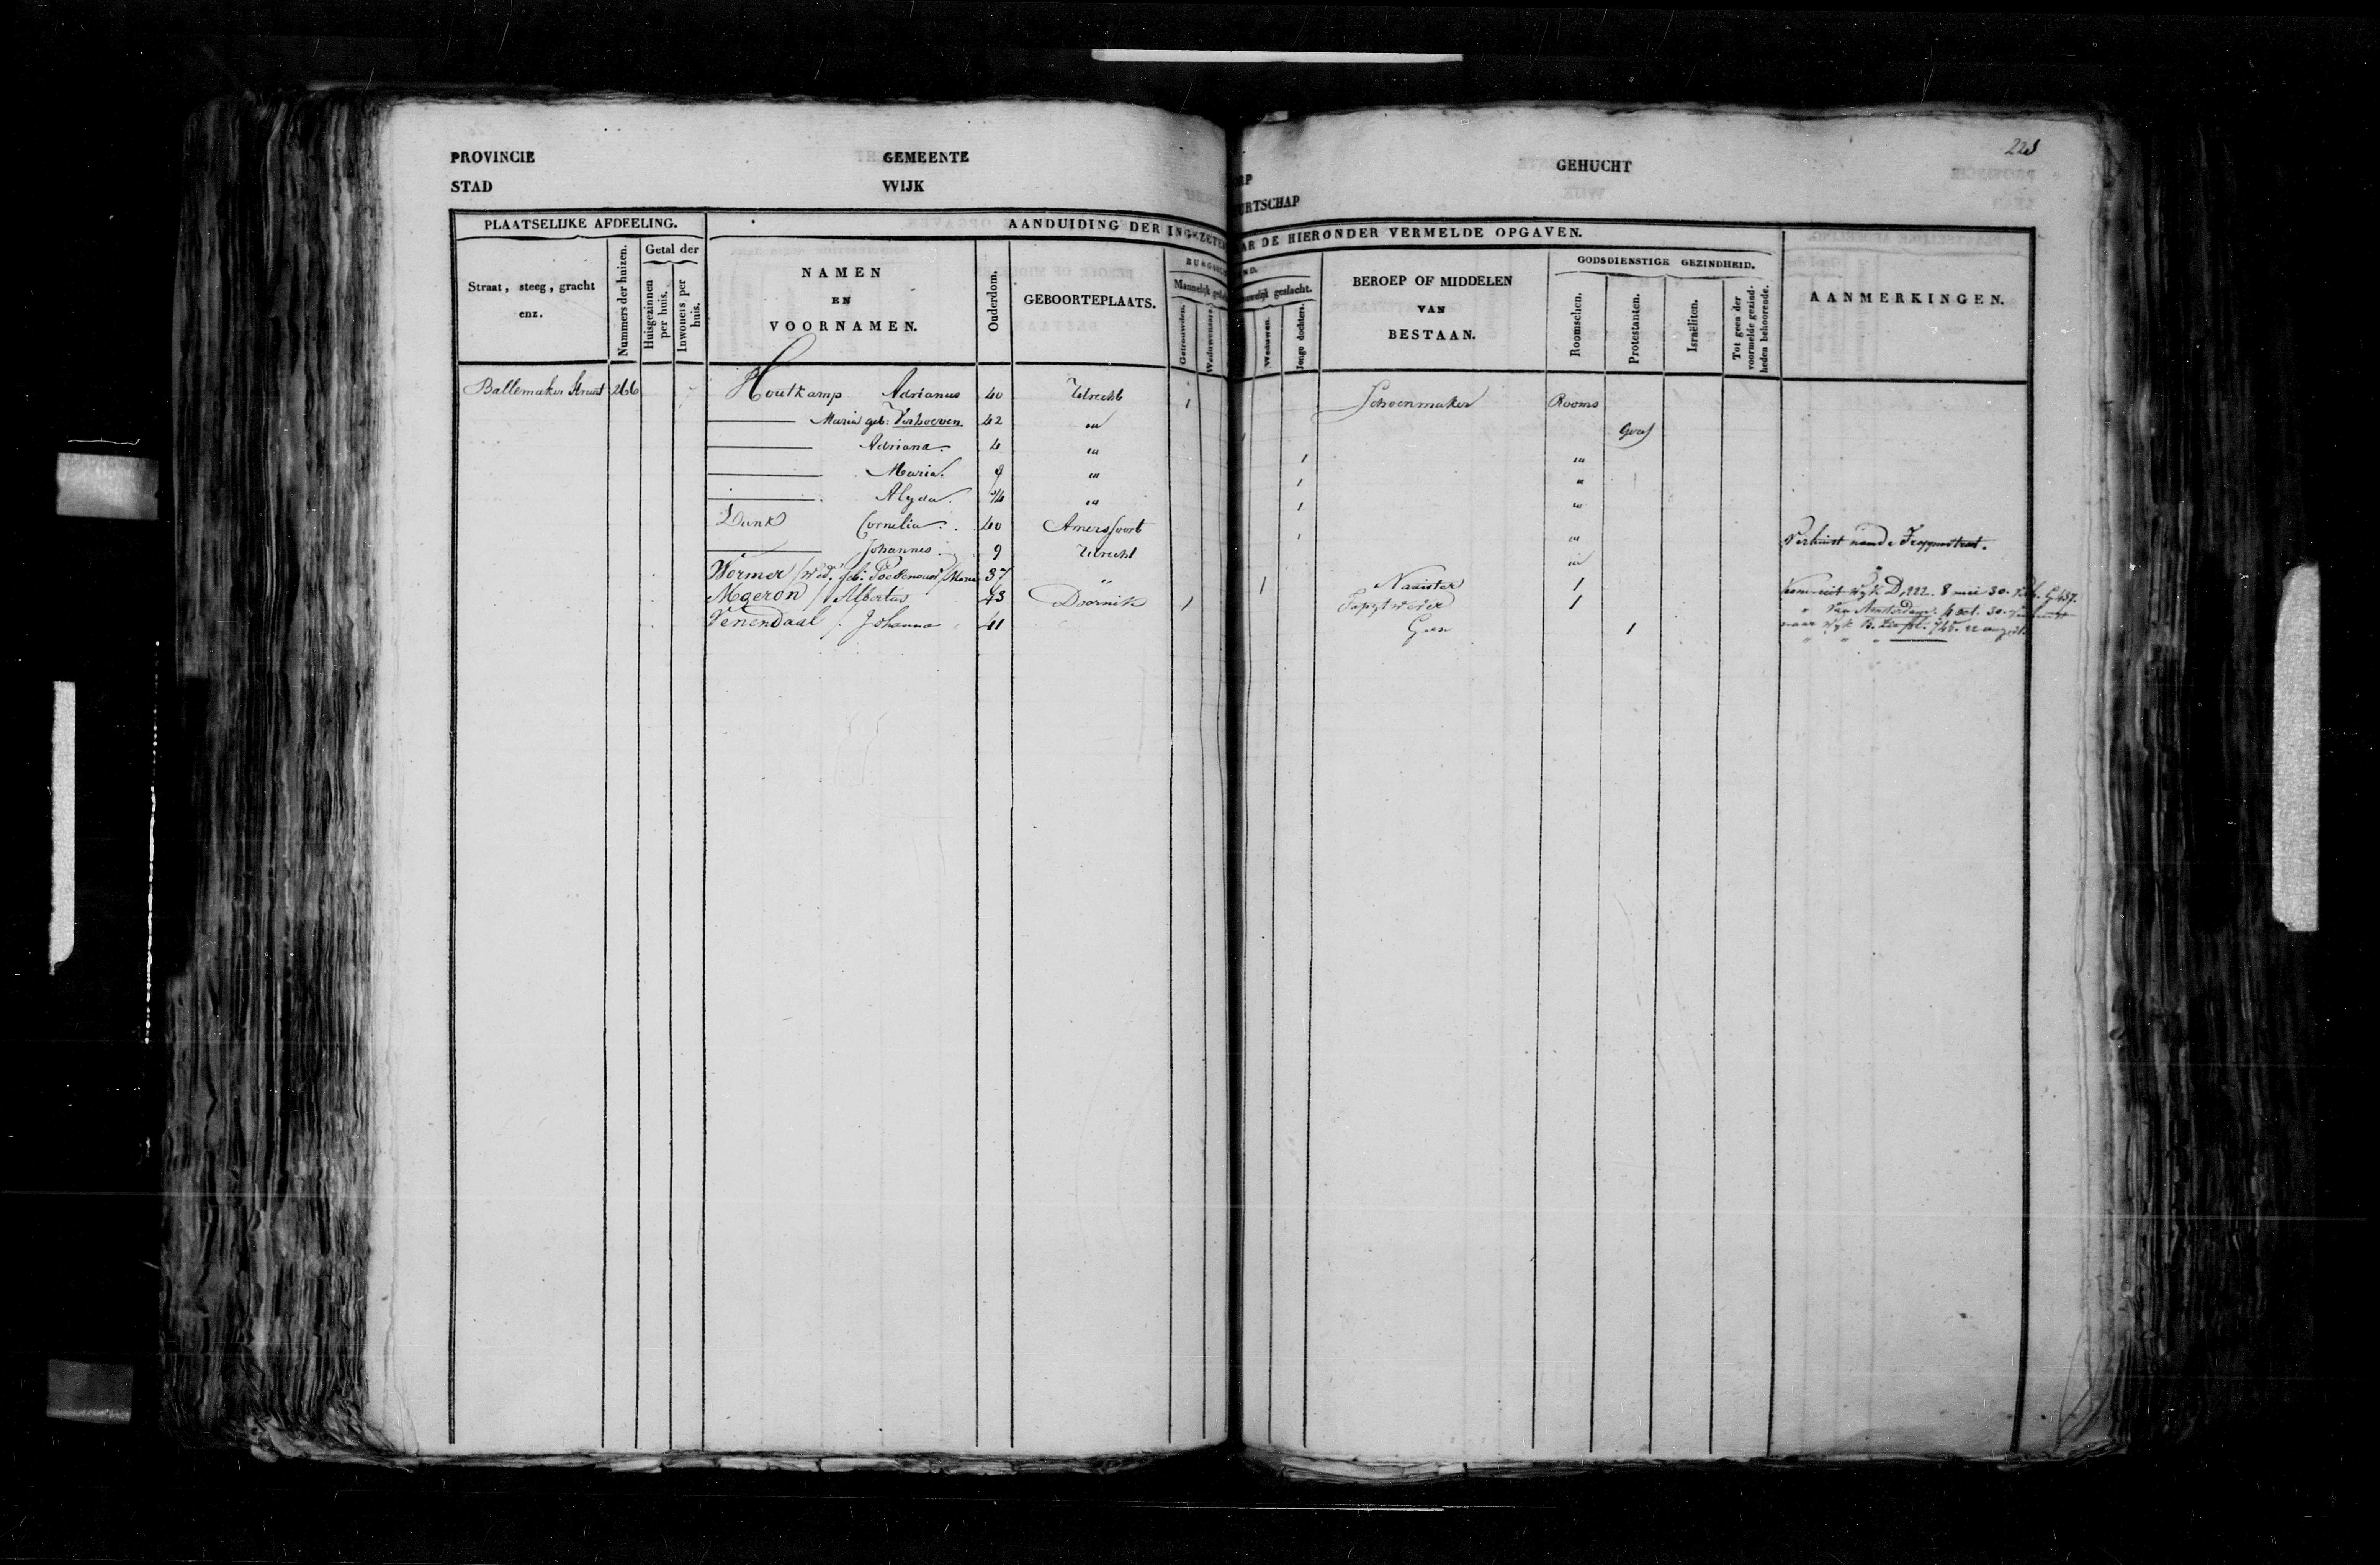 223
PROVINCIE GEMEENTE GEHUCHT
STAD WIJK URTSCHAP
PLAATSELIJKE AFDEELING. AANDUIDING DER INGEZETEN AR DE HIERONDER VERMELDE OPGAVEN.
Straat, steeg, gracht enz.
Nummers der huizen.
Getal der
Huisgezinnen per huis.
Inwoners per huis.
NAMEN
EN
VOORNAMEN.
Ouderdom.
GEBOORTEPLAATS.
Mannelijk
Getrouwden.
Weduwenaars.
geslacht.
Weduwen.
Jonge dochters.
BEROEP OF MIDDELEN
VAN
BESTAAN.
GODSDIENSTIGE GEZINDHEID.
Roomschen.
Protestanten.
Israëliten.
Tot geen der voormelde gezindheden behoorende.
AANMERKINGEN.
Ballemaker Straat 266 7 Houtkamp Adrianus 40 Utrecht 1 Schoenmaker Rooms
Maria geb: Verhoeven 42 " 1 Geref
Adriana 4 " 1 "
Maria 9 " 1 "
Alyda 3/4 " 1 "
Cornelia 40 Amersfoort 1 "
Johannes 9 Utrecht " Verhuist naar de
Wormer Wed. geb: Maria 37 " 1 Naaister 1 Komt uit Wyk D, 222. 8 mei 30.
Mgeron / Albertus 43 Doornik 1 Tapytwever 1 " Van Amsterdam. 4 oct. 30.
Venendaal / Johanna 41 Geen 1 naar Wyk B.
" " "